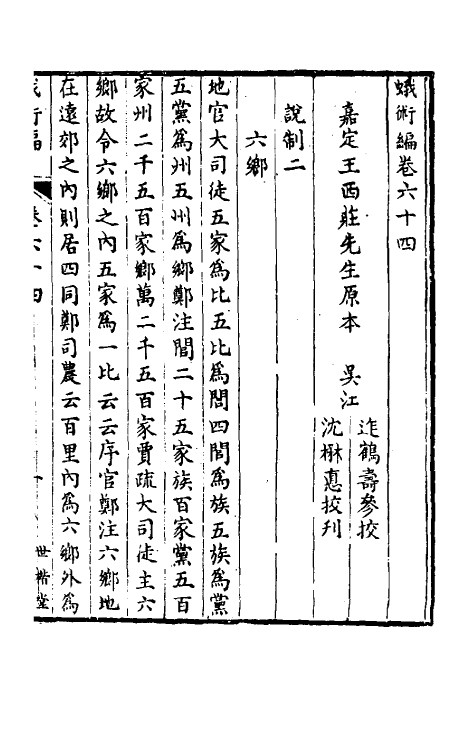 蛾術編卷六十四
嘉定王西莊先生原本　吳江
迮鶴壽參挍
沈楙悳挍刋
說制二
六鄉
地官大司徒五家爲比五比爲閭四閭爲族五族爲黨
五黨爲州五州爲鄉鄭注閭二十五家族百家黨五百
家州二千五百家鄉萬二千五百家賈疏大司徒主六
鄉故令六鄉之內五家爲一比云云序官鄭注六鄉地
在遠郊之內則居四同鄭司農云百里內爲六鄉外爲
蛾術編
卷六十四
世楷堂